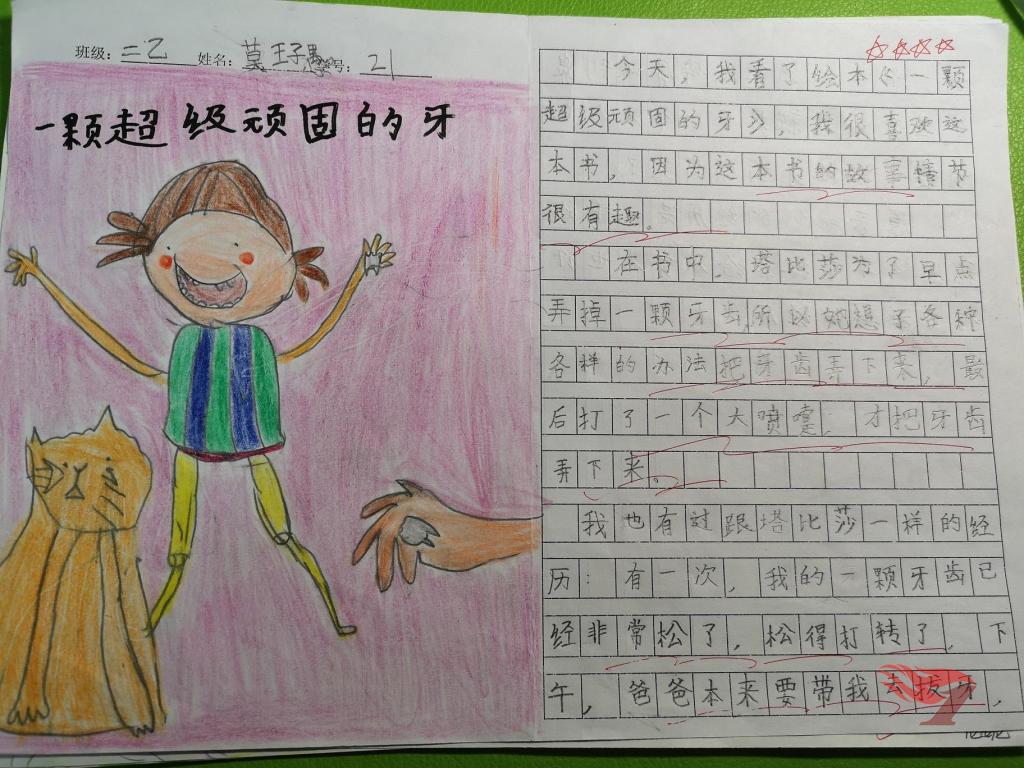 班级：三乙 姓名：莫王子愚 学号：21
一颗超级顽固的牙
今天，我看了绘本《一颗
超级顽固的牙》，我很喜欢这
本书，因为这本书的故事情节
很有趣。
在书中，塔比莎为了早点
弄掉一颗牙齿，所以她想了各种
各样的办法把牙齿弄下来，最
后打了一个大喷嚏，才把牙齿
弄下来。
我也有过跟塔比莎一样的经
历：有一次，我的一颗牙齿已
经非常松了，松得打转了。下
午，爸爸本来要带我去拔牙，